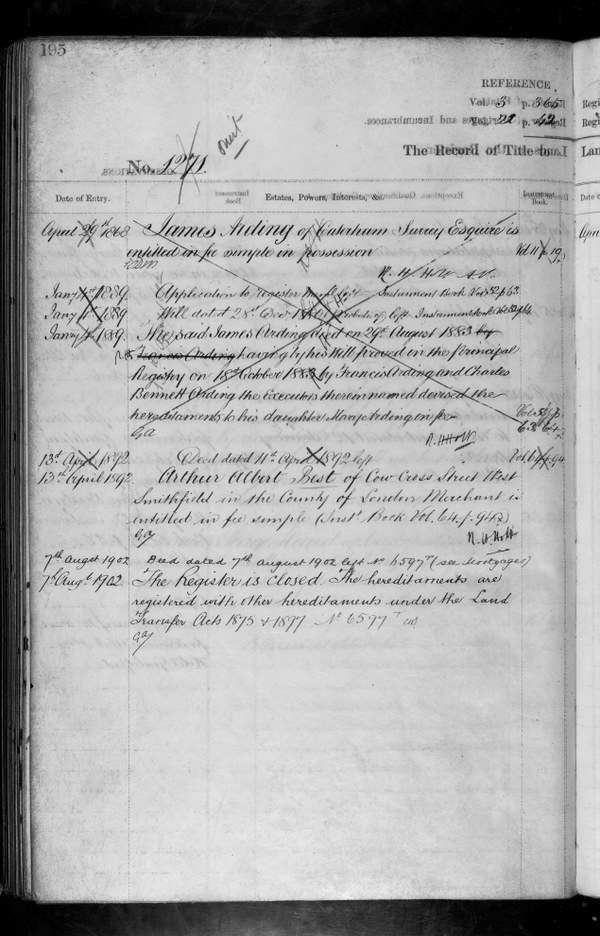 195
REFERENCE
Vol. 3 p. 365
Vol. 22 p. 42
The Record of Title to
No. 1271.
Date of Entry. Estates, Powers, Interests, &c. Instrument Book.
April 29th 1868 James Arding of Caterham Surrey Esquire is
entitled in fee simple in possession Vol 11 p. 19
Jany 4th 1889. Application to register left Instrument Book Vol 52 p 63.
Jany 4th 1889. Will dated 28th Probate of left. Instrument Book Vol 52 p 64.
Jany 4th 1889. The said James Arding died on 29th August 1883 by
Francis Arding having by his Will proved in the Principal
Registry on 18th October 1883 by Francis Arding and Charles
Bennett Arding the executors therein named devised the
hereditaments to his daughter Mary Arding in fee
63 & 64
R. H. Holt
13th April 1892 Deed dated 11th April 1892 left Vol. 64 p. 94
13th April 1892 Arthur Albert Best of Cow Cross Street West
Smithfield in the County of London Merchant is
entitled in fee simple (Inst. Book Vol. 64. p. 94)
R. H. Holt
7th August 1902 Deed dated 7th August 1902 left No 6597 T (see Mortgages)
7th Augt. 1902 The Register is closed The hereditaments are
registered with other hereditaments under the Land
Transfer Acts 1875 & 1897 No 6597 T
Regi
Regi
Lan
Date of
April